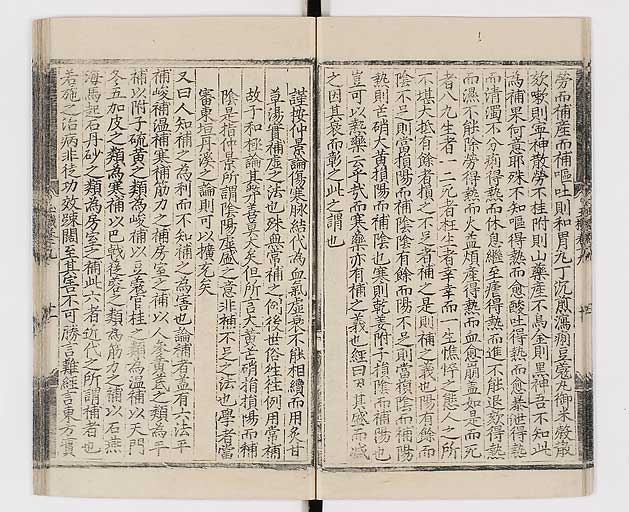 勞而補産而補嘔吐則和胃丸丁沉煎瀉痢豆蔻丸御米殼散
欬嗽則寧神散勞不桂附則山藥産不烏金則黑神吾不知此
為補果何意耶殊不知嘔得熱而愈酸吐得熱而愈暴泄得熱
而清濁不分痢得熱而休息繼至瘧得熱而進不能退欬得熱
而濕不能除勞得熱而火益煩産得熱而血愈崩蓋如是而死
者八九生者一二死者枉生者幸幸而一生憔悴之態人之所
不堪大抵有餘者損之不足者補之是則補之義也陽有餘而
陰不足則當損陽而補陰陰有餘而陽不足則當損陰而補陽
熱則芒硝大黃損陽而補陰也寒則乾姜附子損陰而補陽也
豈可以熱藥云乎哉而寒藥亦有補之義也經曰因其盛而減
之因其衰而彰之此之謂也
謹按仲景論傷寒脉結代為血氣虛衰不能相續而用炙甘
草湯實補虛之法也殊無常補之例後世俗往往例用常補
故子和極論其弊善莫大矣但所言大黃芒硝損陽而補
陰是指仲景所謂陰陽虛盛之意非補不足之法也學者當
審東垣丹溪之論則可以擴充矣
又曰人知補之為利而不知補之為害也論補者蓋有六法平
補峻補溫補寒補筋力之補房室之補以人參黃芪之類為平
補以附子硫黃之類為峻補以豆蔻官桂之類為溫補以天門
冬五加皮之類為寒補以巴戟蓯蓉之類為筋力之補以石燕
海馬起石丹砂之類為房室之補此六者近代之所謂補者也
若施之治病非徒功效踈闊至其害不可勝言難經言東方實